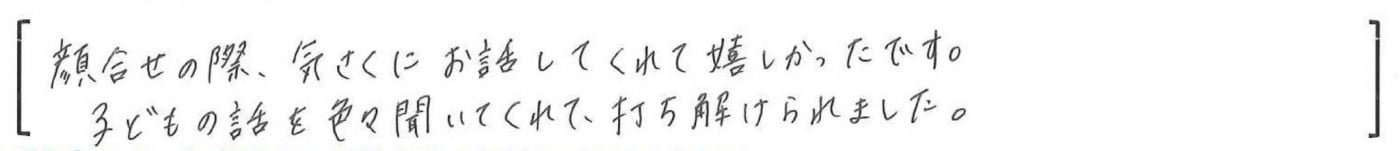 顔合せの際、気さくにお話してくれて嬉しかったです。
子どもの話を色々聞いてくれて、打ち解けられました。